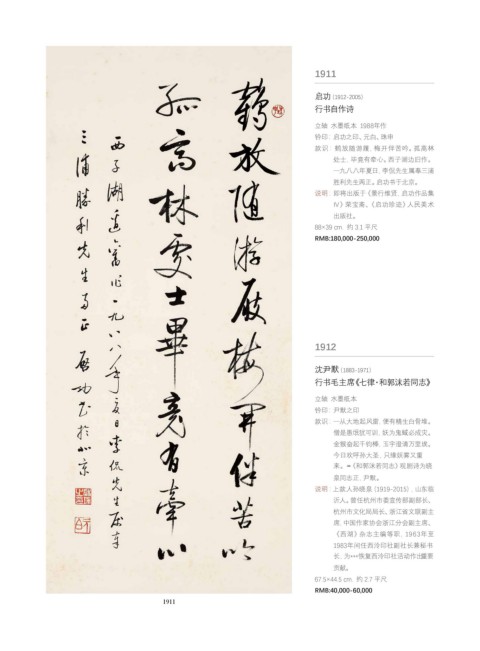 鹤放随游屐梅开伴苦吟
孤高林处士毕竟有牵心
西子湖边旧作一九八八年夏日李侃先生属奉
三浦胜利先生两正 启功书于北京
1911
1911
启功 (1912-2005)
行书自作诗
立轴 水墨纸本 1988年作
钤印：启功之印、元白、珠申
款识：鹤放随游屐，梅开伴苦吟。孤高林
处士，毕竟有牵心。西子湖边旧作。
一九八八年夏日，李侃先生属奉三浦
胜利先生两正。启功书于北京。
说明：即将出版于《景行维贤，启功作品集
Ⅳ》荣宝斋、《启功珍迹》人民美术
出版社。
88×39 cm 约 3.1 平尺
RMB:180,000-250,000
1912
沈尹默 (1883-1971)
行书毛主席《七律·和郭沫若同志》
立轴 水墨纸本
钤印：尹默之印
款识：一从大地起风雷，便有精生白骨堆。
僧是愚氓犹可训，妖为鬼蜮必成灾。
金猴奋起千钧棒，玉宇澄清万里埃。
今日欢呼孙大圣，只缘妖雾又重
来。《和郭沫若同志》祝剧诗为晓
泉同志正，尹默。
说明：上款人孙晓泉 (1919-2015)，山东临
沂人。曾任杭州市委宣传部副部长、
杭州市文化局局长、浙江省文联副主
席，中国作家协会浙江分会副主席，
《西湖》杂志主编等职，1963年至
1983年间任西泠印社副社长兼秘书
长，为恢复西泠印社活动作出重要
贡献。
67.5×44.5 cm 约 2.7 平尺
RMB:40,000-60,000